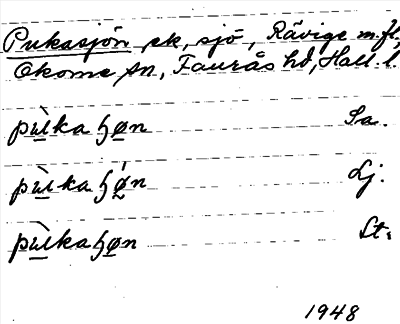 Pukasjön ek, sjö, Rävige m.fl.,
Okome sn, Faurås hd, Hall. l.
pùka ɧøn Sa.
pùka ɧǿn Lj.
pùkaɧøn St.
1948